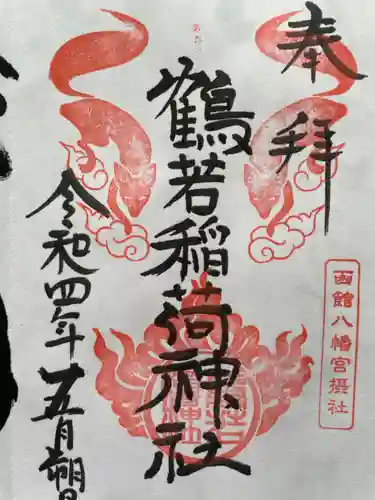 奉拝
函館八幡宮摂社
鶴若稲荷神社
令和四年五月朔日